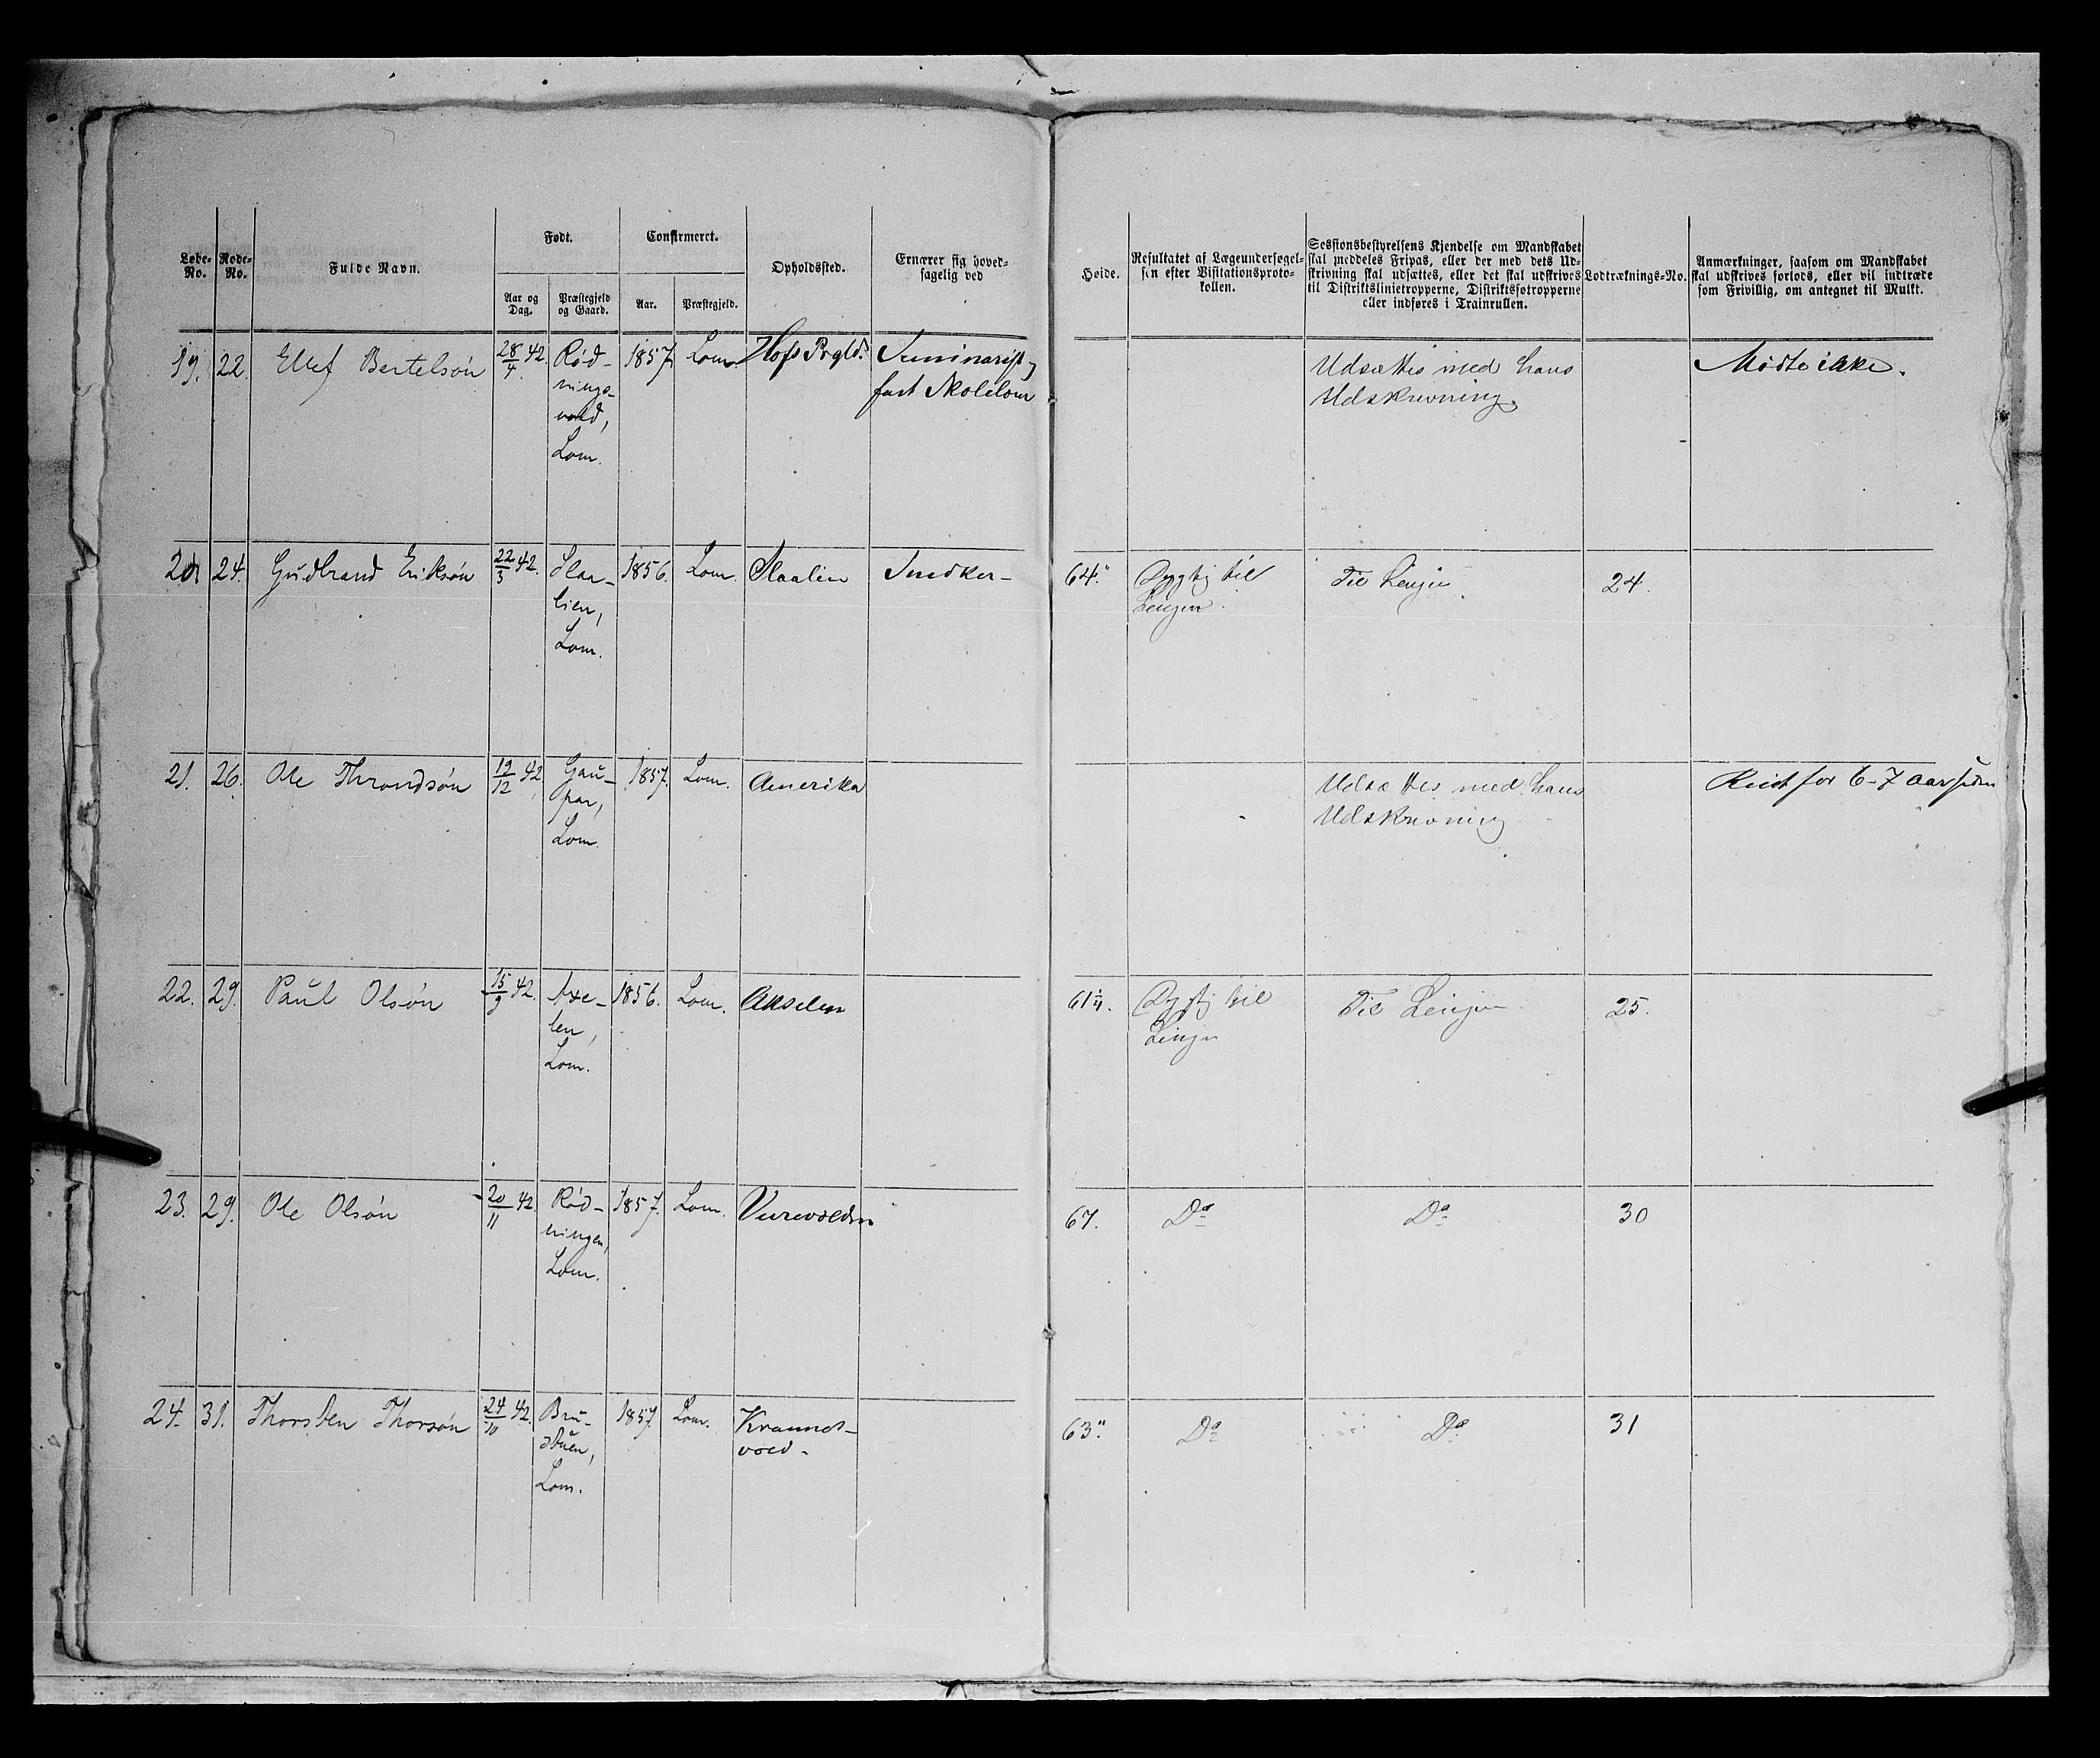 Løbe-No. Rode-No. Fulde Navn. Født. Confirmeret. Opholdssted. Ernærer sig hoved-
sagelig ved
Aar og Dag. Præstegjeld og Gaard. Aar. Præstegjeld.
Høide. Resultatet af Lægeundersøgel-
sen efter Visitationsproto-
kollen.
Sessionsbestyrelsens Kjendelse om Mandskabet
skal meddeles Fripas, eller der med dets Ud-
skrivning skal udsættes, eller det skal udskrives
til Distriktslinietropperne, Distriktsfotropperne
eller indføres i Trainrullen.
Lodtræknings-No.
Anmærkninger, saasom om Mandskabet
skal udskrives forlods, eller vil indtræde
som Frivillig, om antegnet til Mulkt.
19. 22. Ellef Bertelsøn 28/4 42 Rød- 1857 Lom. Hofs Prgld. Seminarist og Udsættes med hans Mødte ikke.
nings- fast Skolelærer Udskrivning.
vold,
Lom.
20. 24. Gudbrand Eriksøn 22/3 42. Slaa- 1856. Lom. Slaalien Snedker- 64." Dygtig til Til Linjen 24.
lien, Linjen.
Lom.
21. 26. Ole Throndsøn 19/12 42 Gau- 1857. Lom. Amerika Udsættes med hans Reist for 6-7 Aar siden
par, Udskrivning
Lom.
22. 29. Paul Olsøn 15/9 42. Axe- 1856. Lom. Akselen 61 Dygtig til Til Linjen 25.
len, Linjen
Lom.
23. 29. Ole Olsøn 20/11 42. Rød- 1857. Lom. 67. Do Do 30
ningen,
Lom.
24. 31. Thorsten Thorsøn 24/10 42. Bru- 1857 Lom. 63." Do Do 31
stuen, vold-
Lom.